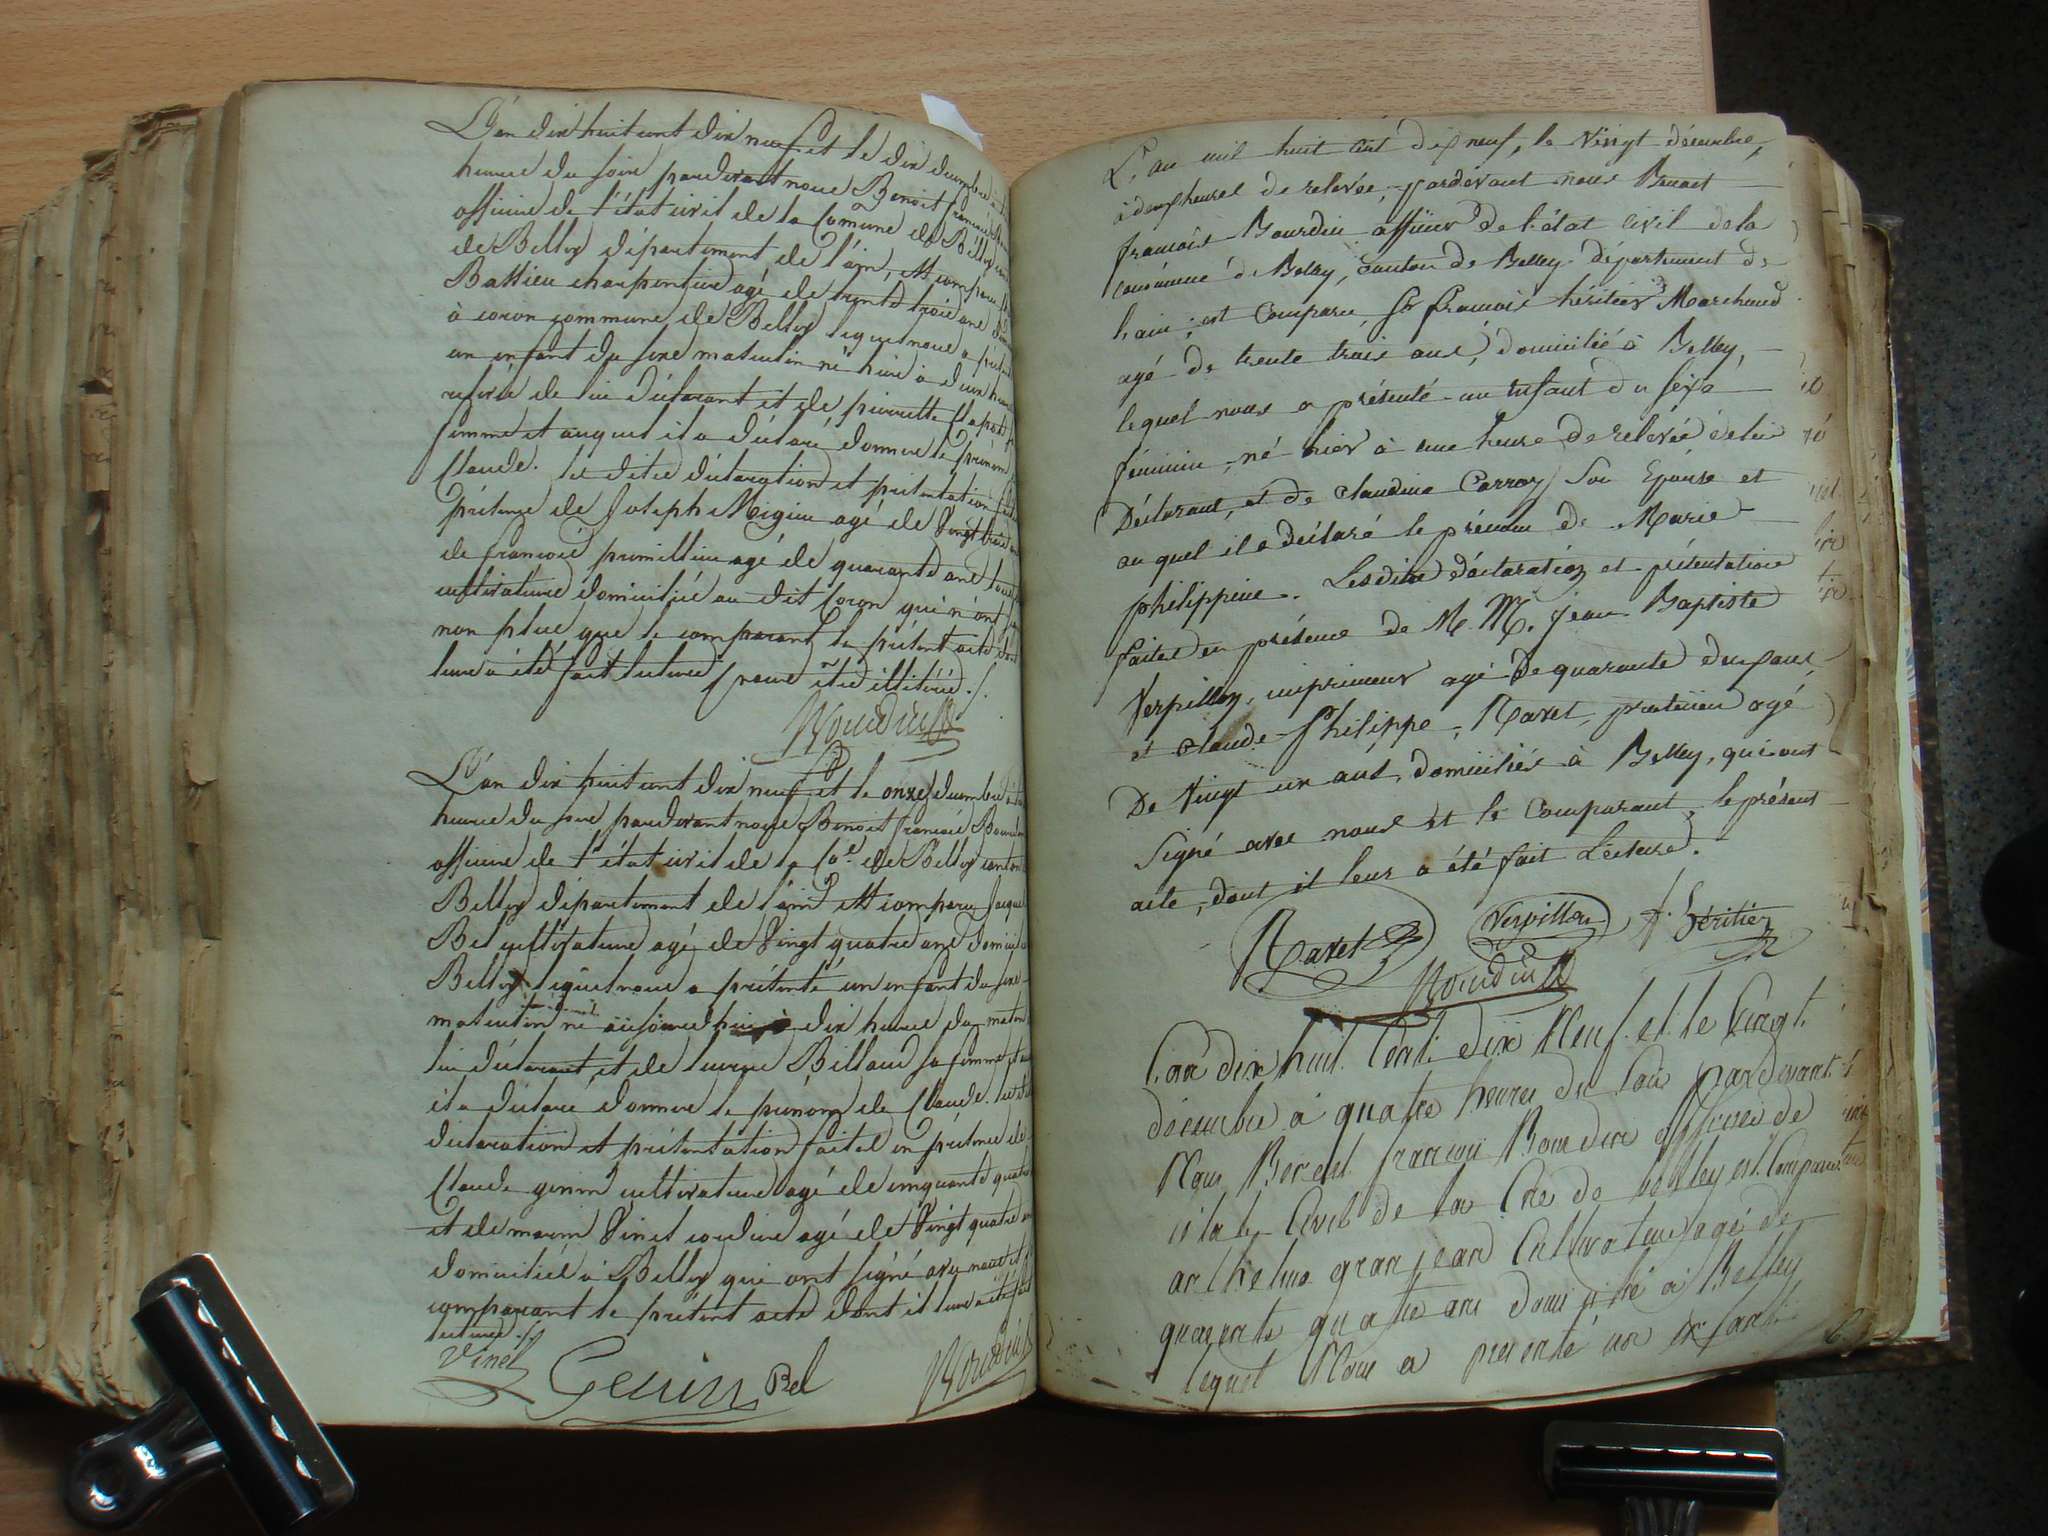 L'an dix huit cent dix neuf et le dix decembre à
heures du soir pardevant nous Benoit francois
officier de l'état civil de la Comune de Belley
de Belley département de l'ain, est comparu
Battieu charpentier agé de trente trois ans
à coron commune de Belley lequel nous a présenté
un enfant du sexe masculin né hier à deux heures
relevée de lui déclarant et de pierrette
femme et auquel il a déclaré donner le prénom
Claude. les dites déclaration et présentation
présence de Joseph Migieu agé de vingt trois
de francois premillieu agé de quarante ans tous
cultivateurs domiciliés au dit Coron qui n'ont
non plus que le comparant le présent acte dont
leur a été fait lecture pour être illitérés ./.
Bourdin
L'an dix huit cent dix neuf et le onze decembre à
heures du soir pardevant nous Benoit francois Bourdin
officier de l'état civil de la Coe. de Belley canton
Belley département de l'ain est comparu Jacques
Bel cultivateur agé de vingt quatre ans domicilié
Belley lequel nous a présenté un enfant du sexe
masculin né aujourd'hui à dix heures du matin
lui déclarant, et de Billaud sa femme et
il a déclaré donner le prénom de Claude. les dites
déclaration et présentation faites en présence de
Claude genin cultivateur agé de cinquante quatre
et de marin Vinet agé de vingt quatre ans
domiciliés à Belley qui ont signé avec nous et le
comparant le présent acte dont il leur a été fait
lecture ./.
Vinet Genin Bel Bourdin
L'an mil huit cent dix neuf, le vingt décembre,
à deux heures de relevée, pardevant nous Benoit
françois Bourdin officier de l'état civil de la
commune de Belley, canton de Belley département de
l'ain; est comparu, Sr françois héritier Marchand
agé de trente trois ans, domicilié à Belley,
lequel nous a présenté un enfant du sexe
féminin, né hier à une heure de relevée de lui
Déclarant, et de Claudine Carroz son Epouse et
au quel il a déclaré le prénom de Marie
philippine. Lesdites déclaration et présentation
faites en présence de M.M. jean Baptiste
Verpillon, imprimeur agé de quarante deux ans,
et Claude Philippe Ravet, praticien agé
De Vingt un ans, domiciliés à Belley, qui ont
signé avec nous et le Comparant, le présent
acte, dont il leur a été fait Lecture.
Ravet Verpillon f. héritier
Bourdin
L'an dix huit Cent dix Neuf et le vingt
décembre à quatre heures du soir pardevant
Nous Benoit françois Bourdin officier de
l'état Civil de la Cne de belley est Comparu
anthelme granjean Cultivateur agé de
quarente quatre ans domicilié à Belley
lequel Nous a presenté un enfant